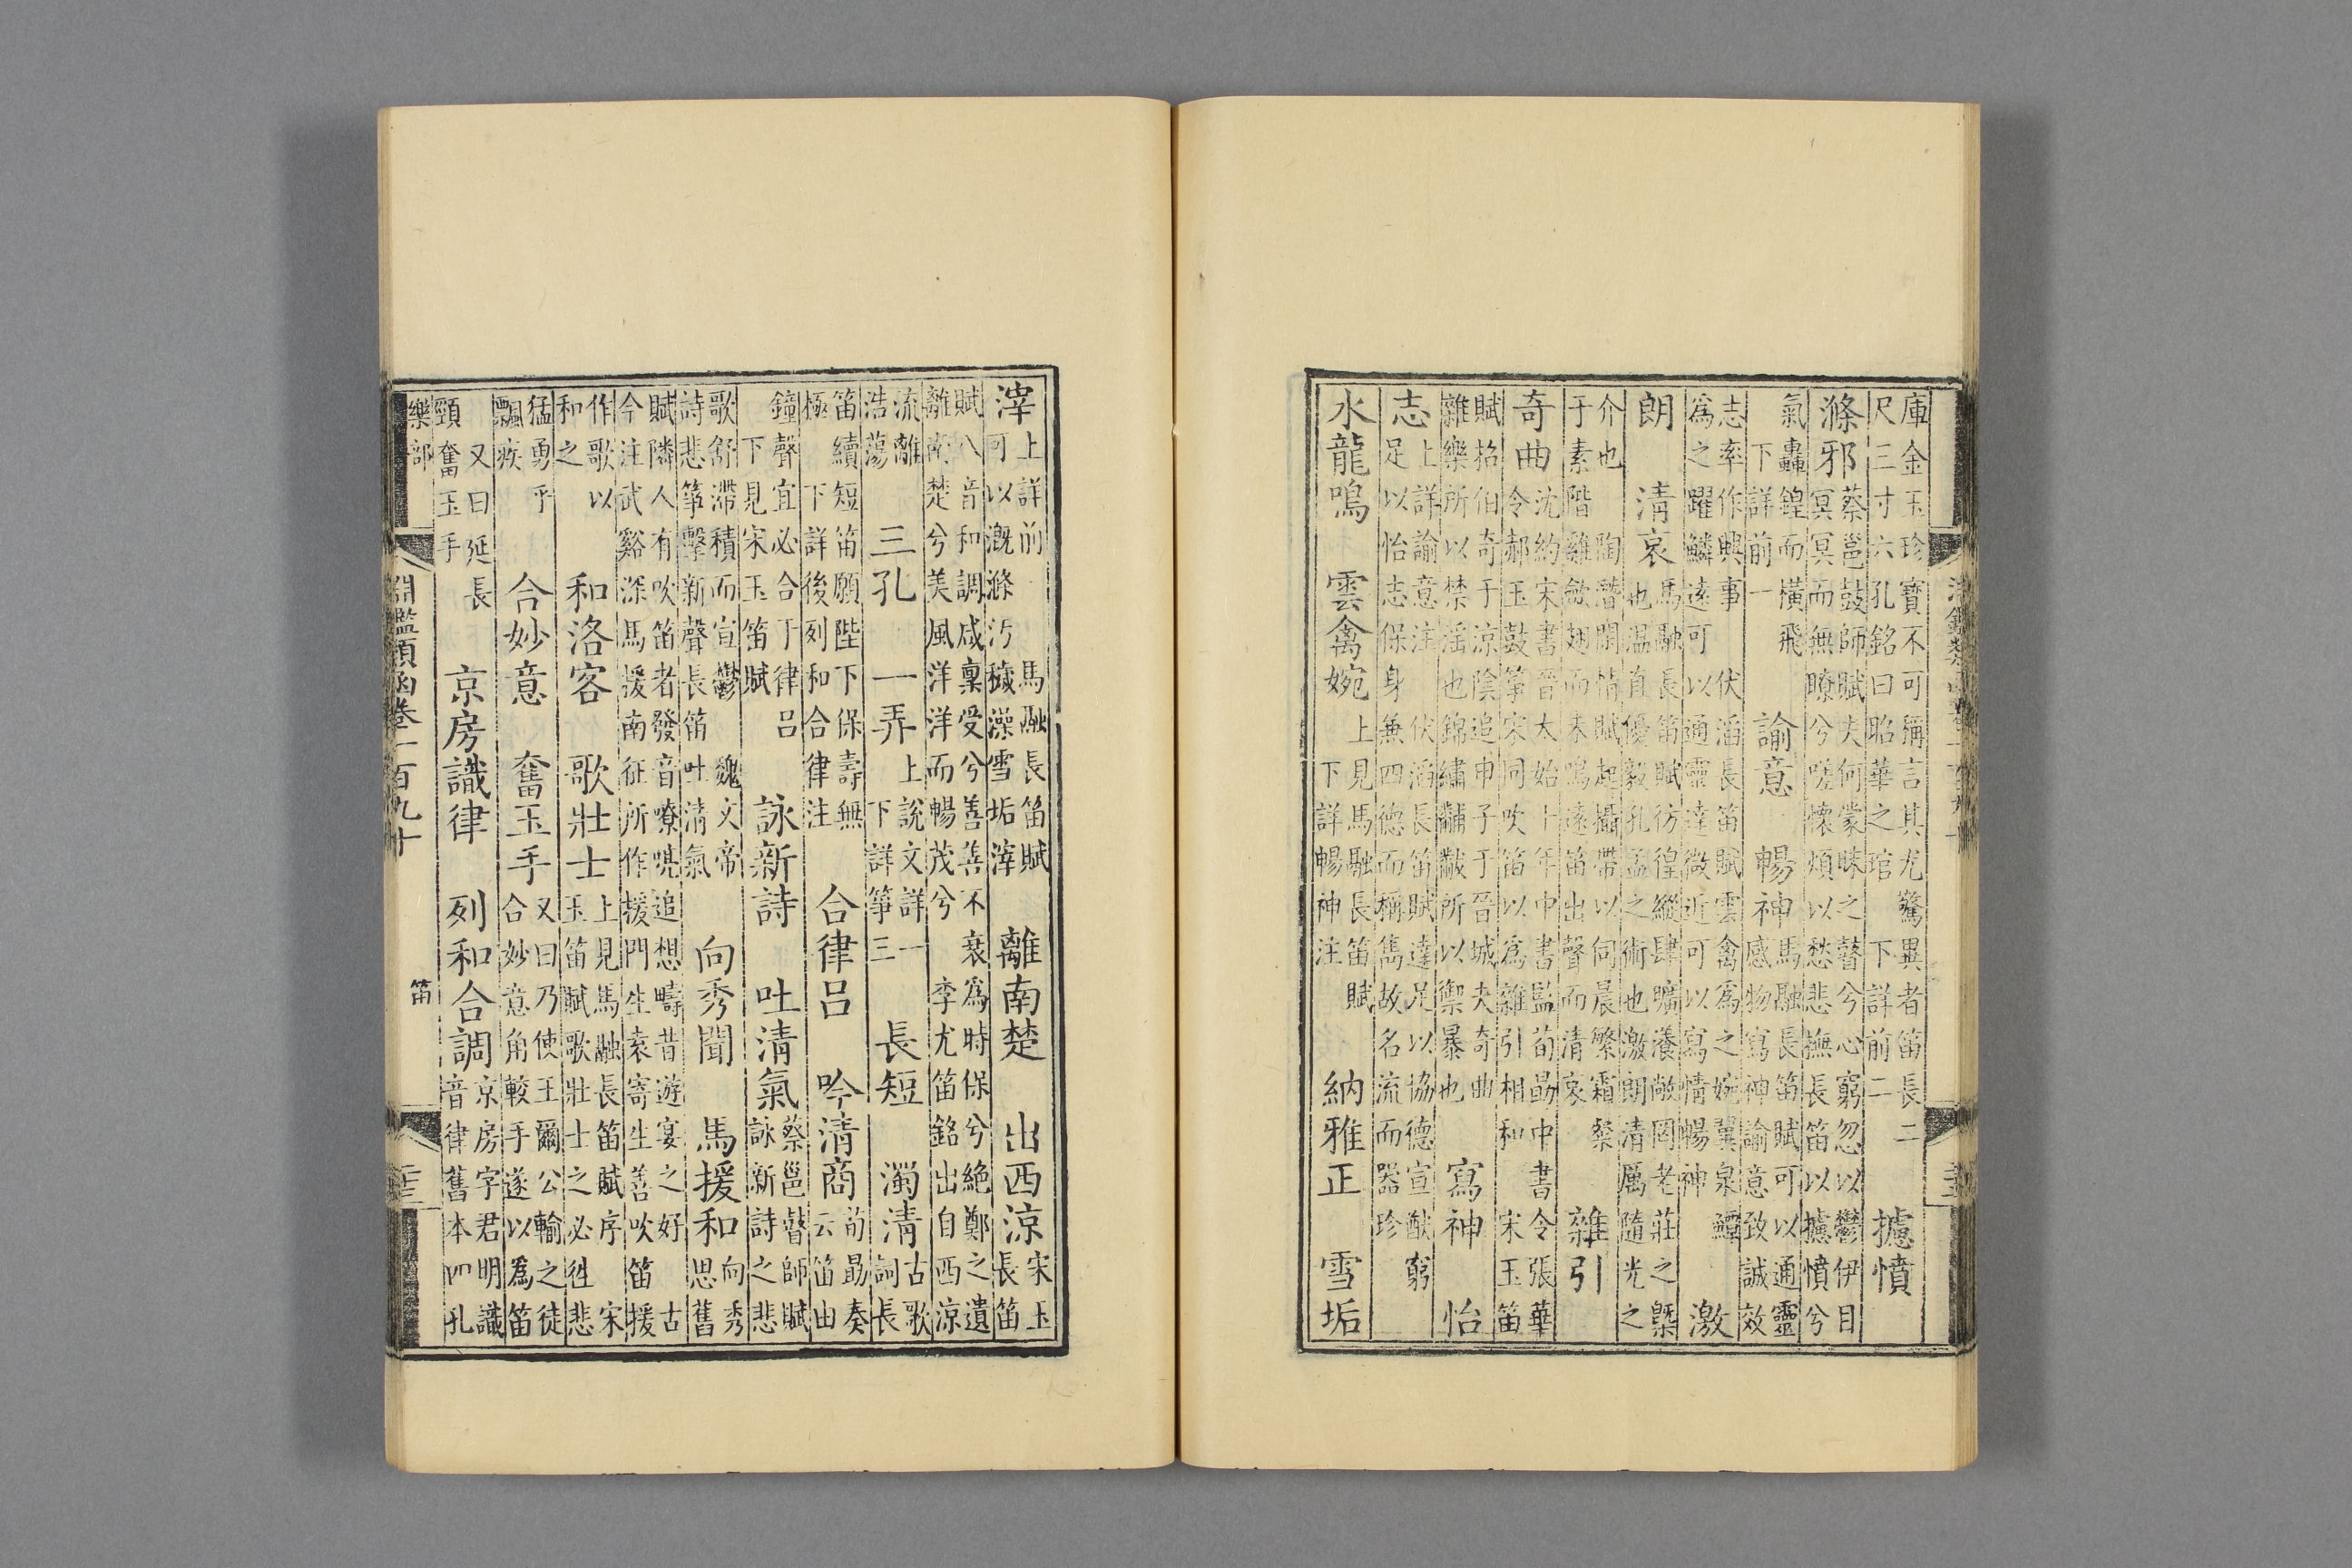 庫金玉珍寶不可稱言其尤驚異者笛長二
尺三寸六孔銘曰昭華之琯 下詳前二 攄憤
滌邪 蔡邕鼓師賦夫何蒙昧之瞽兮心窮忽以鬱伊目
冥冥而無瞭兮嗟懷煩以愁悲撫長笛以攄憤兮
氣轟鍠而橫飛
下詳前一 諭意 暢神 馬融長笛賦可以通靈
感物寫神諭意致誠效
志率作興事 伏滔長笛賦雲禽為之婉翼泉鱏
為之躍鱗遠可以通靈達微近可以寫情暢神 激
朗 清哀 馬融長笛賦彷徨縱肆曠瀁敞罔老莊之槩
也温直優毅孔孟之術也激朗清厲隨光之
介也 陶潛閑情賦起攝帶以伺晨繁霜粲
于素階雞斂翅而未鳴遠笛出聲而清哀 雜引
奇曲 沈約宋書晉太始十年中中書監荀勗中書令張華
令郝玉鼓箏宋同吹笛以為雜引相和 宋玉笛
賦招伯奇于涼陰追申子于晉城夫奇曲
雜樂所以禁滛也錦繡黼黻所以禦暴也 寫神 怡
志 上詳諭意注 伏滔長笛賦達足以協德宣猷窮
足以怡志保身兼四德而稱雋故名流而器珍
水龍鳴 雲禽婉 上見馬融長笛賦
下詳暢神注 納雅正 雪垢
滓 上詳前 馬融長笛賦
可以溉滌汚穢澡雪垢滓 離南楚 出西涼 宋玉
長笛
賦八音和調咸稟受兮善善不衰為時保兮絶鄭之遺
離南楚兮美風洋洋而暢茂兮 李尤笛銘出自西涼
流離
浩蕩 三孔 一弄 上說文詳一
下詳箏三 長短 濁清 古歌
詞長
笛續短笛願陛下保壽無
極 下詳後列和合律注 合律呂 吟清商 荀勗奏
云笛曲
鐘聲宜必合于律呂
下見宋玉笛賦 詠新詩 吐清氣 蔡邕瞽師賦
詠新詩之悲
歌舒滯積而宣鬱 魏文帝
詩悲箏擊新聲長笛吐清氣 向秀聞 馬援和 向秀
思舊
賦隣人有吹笛者發音嘹喨追想疇昔遊宴之好 古
今注武谿深馬援南征所作援門生袁寄生善吹笛援
作歌以
和之 和洛客 歌壯士 上見馬融長笛賦序 宋
玉笛賦歌壯士之必徃悲
猛勇乎
飄疾 合妙意 奮玉手 又曰乃使王爾公輸之徒
合妙意角較手遂以為笛
又曰延長
頸奮玉手 京房識律 列和合調 京房字君明識
音律舊本四孔
樂部 笛
淵鑑類函卷一百九十